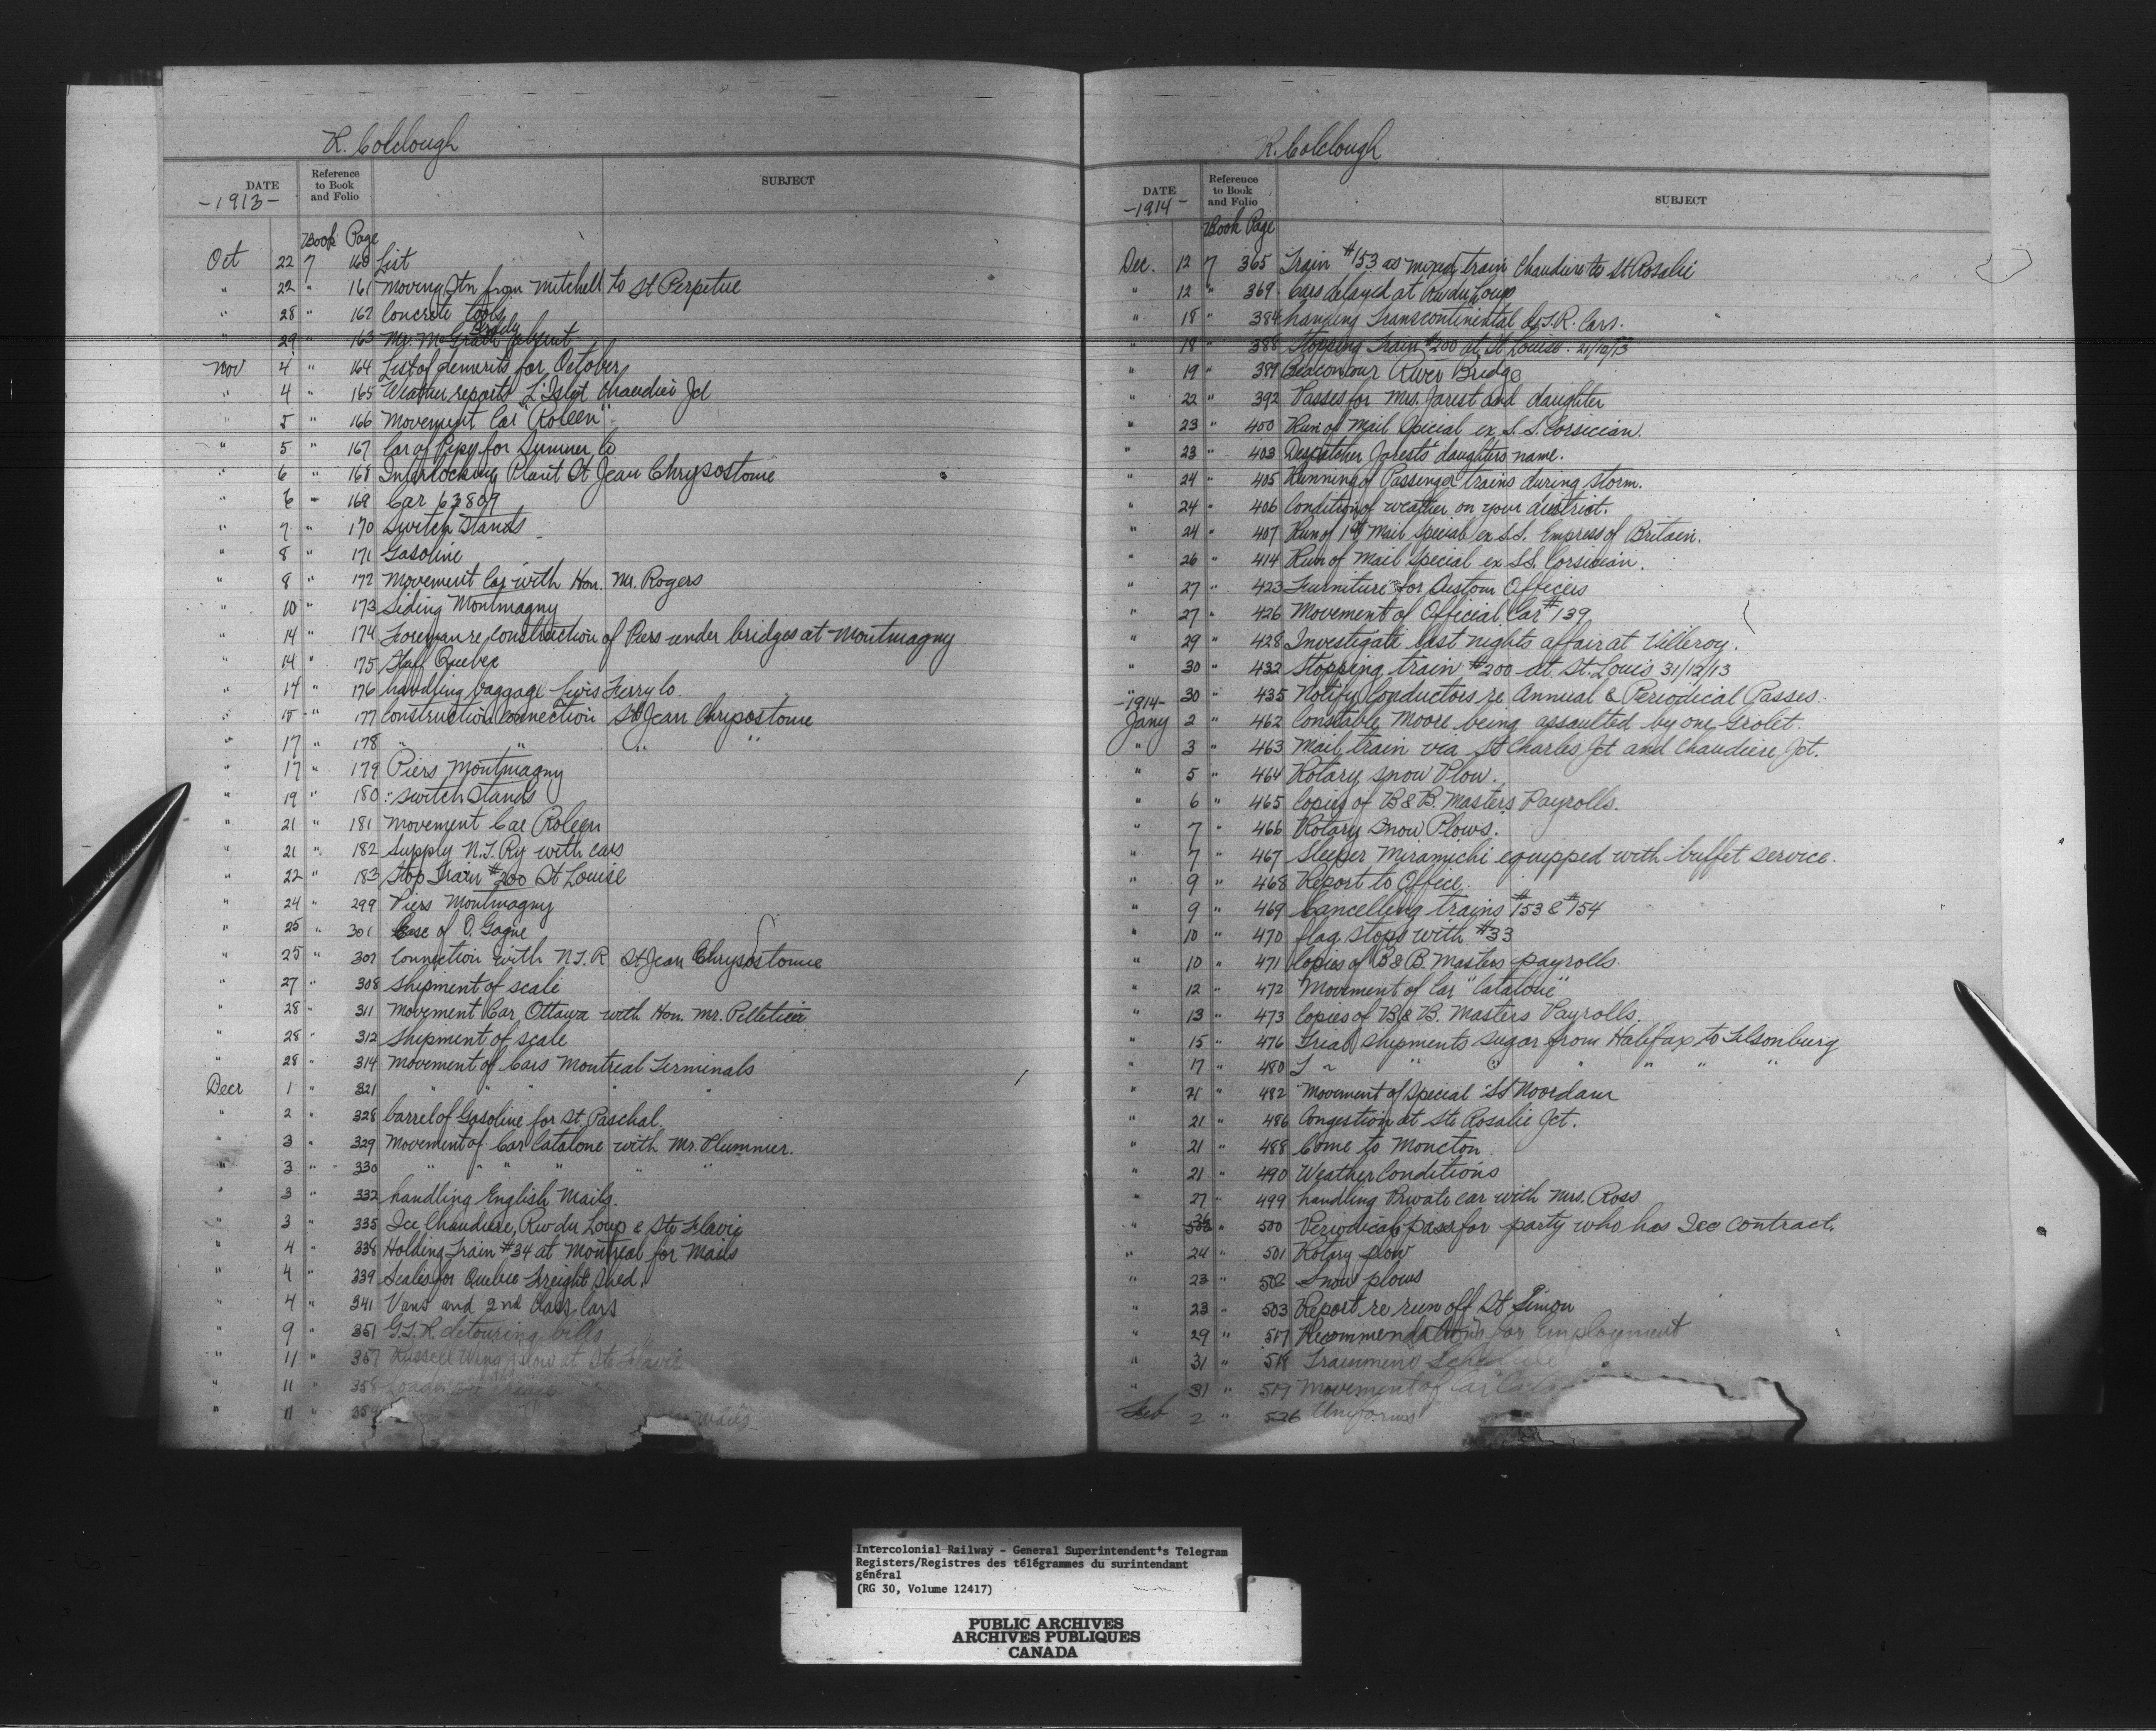 R. Colclough
DATE Reference to Book and Folio SUBJECT
-1913-
Book Page
Oct 22 7 160 List
" 22 " 161 Moving Stn from Mitchell to St Perpetue
" 28 " 162 Concrete Tools
" 29 " 163 Mr. McGrath absent
Nov 4 " 164 List of demerits for October
" 4 " 165 Weather reports L'Islet Chaudiere Jct
5 " 166 Movement Car "Roleen"
" 5 " 167 Car of Pipe for Sumner Co
" 6 " 168 Interlocking Plant St Jean Chrysostome
" 6 " 169 Car 63809
" 7 " 170 Switch Stands
" 8 " 171 Gasoline
" 8 " 172 Movement Car with Hon. Mr. Rogers
" 10 " 173 Siding Montmagny
" 14 " 174 Foreman re construction of Piers under bridges at Montmagny
" 14 " 175 Staff Quebec
" 14 " 176 handling baggage Levis Ferry Co.
" 15 " 177 Construction Connection St Jean Chrysostome
" 17 " 178 " " " "
" 17 " 179 Piers Montmagny
" 19 " 180 Switch Stands
" 21 " 181 Movement Car Roleen
" 21 " 182 Supply N.T. Ry with cars
" 22 " 183 Stop Train #200 St Louise
" 24 " 299 Piers Montmagny
" 25 " 301 Case of O. Gagne
" 25 " 302 Connection with N.T.R St Jean Chrysostome
" 27 " 308 Shipment of scale
" 28 " 311 Movement Car Ottawa with Hon. Mr. Pelletier
" 28 " 312 Shipment of scale
" 28 " 314 Movement of Cars Montreal Terminals
Decr 1 " 321 " " " " "
" 2 " 328 barrel of Gasoline for St. Paschal
" 3 " 329 Movement of Car Catalone with Mr. Plummer.
" 3 " 330 " " " " " "
" 3 " 332 handling English Mails.
" 3 " 335 Ice Chaudiere, Riv du Loup & Ste Flavie
" 4 " 338 Holding Train #34 at Montreal for Mails
" 4 " 339 Scales for Quebec Freight Shed.
" 4 " 341 Vans and 2nd Class Cars
" 9 " 351 G.T.R. detouring bills
" 11 " 357 Russell Wing plow at Ste Flavie
" 11 " 358
" 11 " 359 Mails
R. Colclough
DATE Reference to Book and Folio SUBJECT
-1914-
Book Page
Dec. 12 7 365 Train #153 as mixed train Chaudiere to St Rosalie
" 12 " 369 Cars delayed at Riv du Loup
" 18 " 384 handling Transcontinental & I.R. Cars.
" 18 " 388 Stopping Train #200 at St Louise. 21/12/13
" 19 " 389 River Bridge
" 22 " 392 Passes for Mrs. Jarest and daughter
" 23 " 400 Run of Mail Special ex S.S. Corsician.
" 23 " 403 Despatcher Jarest's daughters name.
" 24 " 405 Running of Passenger trains during storm.
" 24 " 406 Condition of weather on your district.
" 24 " 407 Run of 1st Mail Special ex S.S. Empress of Britain.
" 26 " 414 Run of Mail Special ex SS. Corsician.
" 27 " 423 Furniture for Custom Officers
" 27 " 426 Movement of Official Car #139
" 29 " 428 Investigate last nights affair at Villeroy.
" 30 " 432 Stopping train #200 at St. Louis 31/12/13
" 30 " 435 Notify Conductors re Annual & Periodical Passes.
-1914-
Jany 2 " 462 Constable Moore being assaulted by one Grolet.
" 3 " 463 Mail train via St Charles Jct and Chaudiere Jct.
" 5 " 464 Rotary Snow Plow.
" 6 " 465 Copies of B&B. Masters Payrolls.
" 7 " 466 Rotary Snow Plows.
" 7 " 467 Sleeper Miramichi equipped with buffet service.
" 9 " 468 Report to Office.
" 9 " 469 Cancelling trains #153 & #154
" 10 " 470 flag stops with #33
" 10 " 471 Copies of B&B. Masters payrolls.
" 12 " 472 Movement of Car "Catalone"
" 13 " 473 Copies of B&B. Masters Payrolls.
" 15 " 476 Trial Shipments sugar from Halifax to Tilsonburg
" 17 " 480 " " " " " "
" 21 " 482 Movement of Special SS Noordam
" 21 " 486 Congestion at Ste Rosalie Jct.
" 21 " 488 Come to Moncton
" 21 " 490 Weather Conditions
" 27 " 499 handling Private car with Mrs. Ross
" " 500 Periodical pass for party who has Ice contract.
" 24 " 501 Rotary plow
" 23 " 502 Snow plows
" 23 " 503 Report re run off St Simon
" 29 " 517 Recommendations for Employment
" 31 " 518 Trainmens Schedule
" 31 " 519 Movement of Car
Feb 2 " 526 Uniforms
Intercolonial Railway - General Superintendent's Telegram
Registers/Registres des télégrammes du surintendant
général
(RG 30, Volume 12417)
PUBLIC ARCHIVES
ARCHIVES PUBLIQUES
CANADA